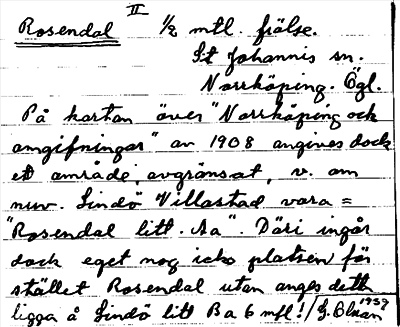 II
Rosendal 1/2 mtl. frälse.
St Johannis sn.
Norrköping. Ögl.
På kartan över "Norrköping och
omgifningar" av 1908 angives dock
ett område, avgränsat, v. om
nuv. Lindö Villastad vara =
"Rosendal litt. Aa". Däri ingår
dock eget nog icke platsen för
stället Rosendal utan anges detta
ligga å Lindö litt Ba 6 mfl! /G. Olsson 1937